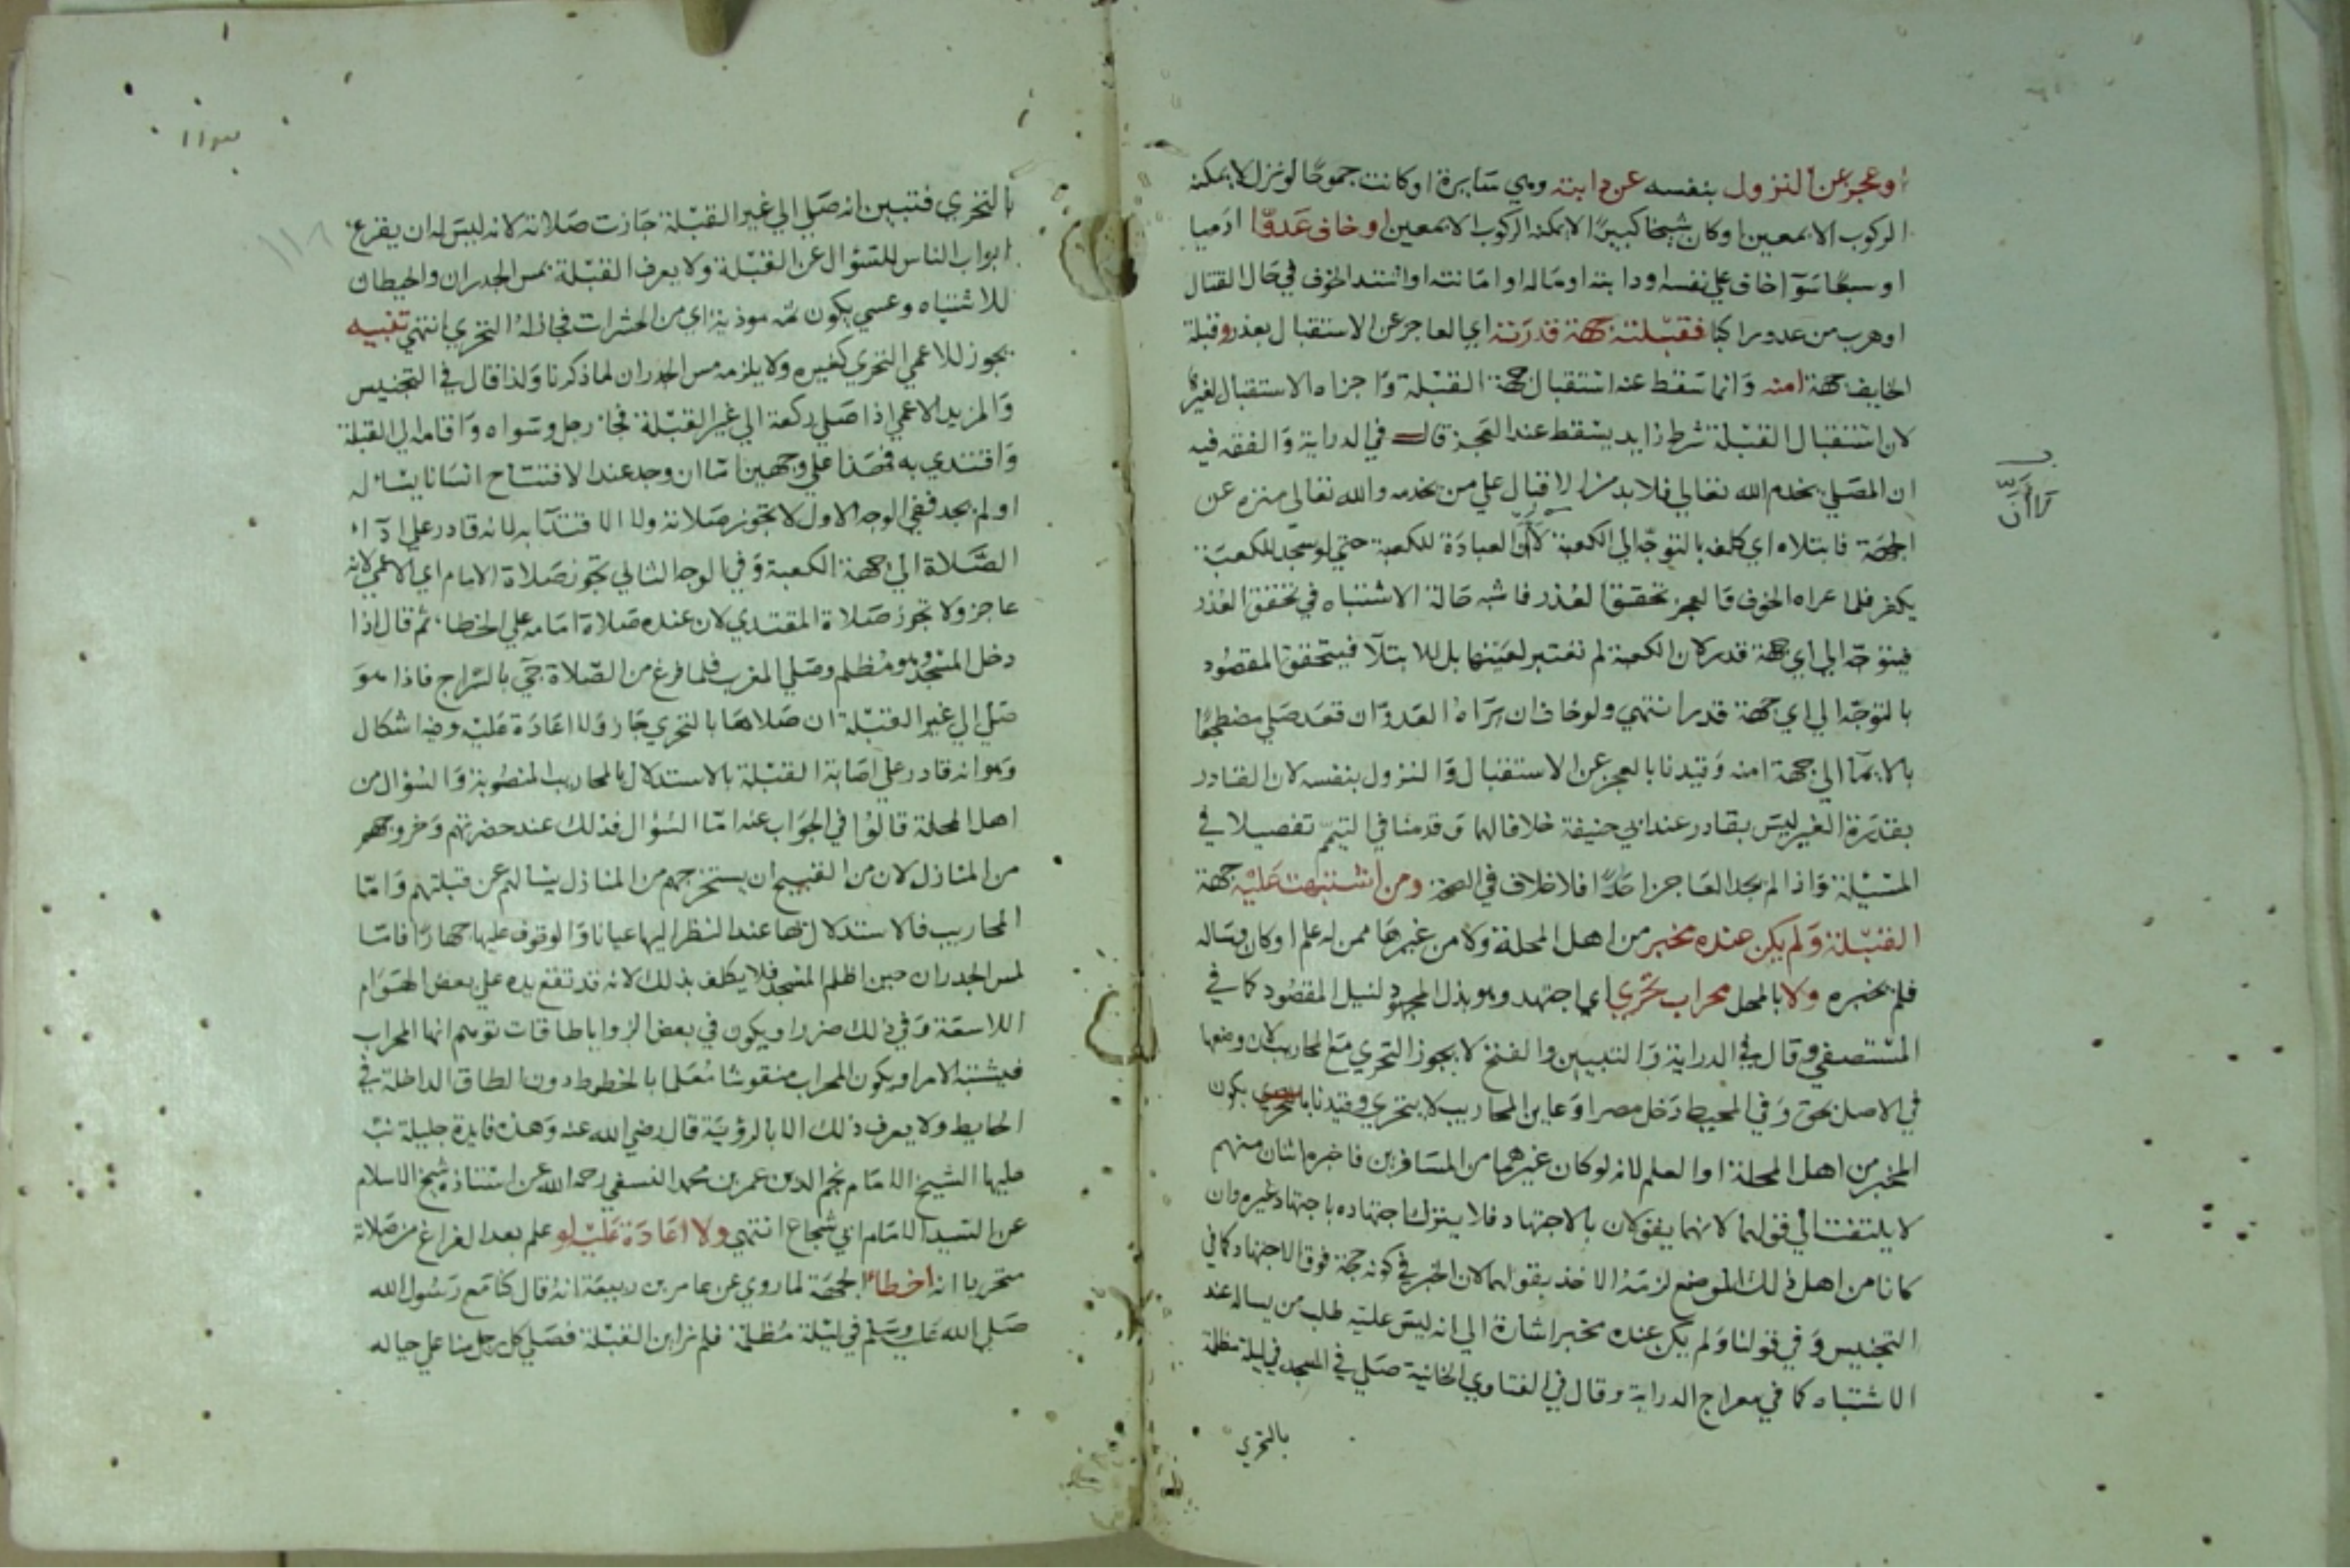 او عجز عن النزول بنفسه عن دابته وهي سايرة او كانت جموحا لو نزل لا يمكنه
الركوب الا بمعين او كان شيخا كبيرا لا يمكنه الركوب الا بمعين او خاف عدوا ادميا
او سبعا سوآ خاف علي نفسه او دابته او ماله او امانته او اشتد الخوف في حال القتال
او هرب من عدو راكبا فقبلته جهة قدرته اي العاجز عن الاستقبال بعذر وقبلة
الخايف جهة امنه وانما سقط عنه استقبال جهة القبلة واجزاه الاستقبال لغيرها
لان استقبال القبلة شرط زايد يسقط عند العجز قال في الدراية والفقه فيه
ان المصلي يخدم الله تعالي فلا بد من الاقبال علي من يخدمه والله تعالي منزه عن
الجهة فابتلاه اي كلفه بالتوجه الي الكعبة لا ان العبادة للكعبة حتي لو سجد للكعبة
يكفر فلما عراه الخوف والعجز تحقق العذر فاشبه حالة الاشتباه في تحقق العذر
فيتوجه الي اي جهة قدر لان الكعبة لم تعتبر لعينها بل للابتلآ فيتحقق المقصود
بالتوجه الي اي جهة قدر انتهي ولو خاف ان يراه العدو ان قعد صلي مضطجعا
بالايمآ الي جهة امنه وقيدنا بالعجز عن الاستقبال والنزول بنفسه لان القادر
بقدرة الغير ليس بقادر عند ابي حنيفة خلافا لهما وقدمنا في التيمم تفصيلا في
المسيلة واذا لم يجد العاجز احدا فلا خلاف في الصحة ومن اشتبهت عليه جهة
القبلة ولم يكن عنده مخبر من اهل المحلة ولا من غيرها ممن له علم او كان وساله
فلم يخبره ولا بالمحل محراب تحري اي اجتهد وهو بذل المجهود لنيل المقصود كما في
المستصفي وقال في الدراية والتبيين والفتح لا يجوز التحري مع المحاريب لان وضعها
في الاصل بحق وفي المحيط دخل مصرا وعاين المحاريب لا يتحري وقيدنا بكون
المخبر من اهل المحلة او العلم لانه لو كان غيرهما من المسافرين فاخبره اثنان منهم
لا يلتفت الي قولهما لانهما يقولان بالاجتهاد فلا يترك اجتهاده باجتهاد غيره وان
كانا من اهل ذلك الموضع لزمه الاخذ بقولهما لان الخبر في كونه حجة فوق الاجتهاد كما في
التجنيس وفي قولنا ولم يكن عنده مخبر اشارة الي انه ليس عليه طلب من يساله عند
الاشتباه كما في معراج الدراية وقال في الفتاوي الخانية صلي في المسجد في ليلة مظلمة
بالتحري
بالتحري فتبين انه صلي الي غير القبلة جازت صلاته لانه ليس له ان يقرع
ابواب الناس للسؤال عن القبلة ولا يعرف القبلة بمس الجدران والحيطان
للاشتباه وعسي يكون ثمه موذية اي من الحشرات فجاز له التحري انتهي تنبيه
يجوز للاعمي التحري كغيره ولا يلزمه مس الجدران لما ذكرنا ولذا قال في التجنيس
والمزيد الاعمي اذا صلي ركعة الي غير القبلة فجا رجل وسواه واقامه الي القبلة
واقتدي به فهذا علي وجهين اما ان وجد عند الافتتاح انسانا يساله
او لم يجد ففي الوجه الاول لا تجوز صلاته ولا الاقتدآ به لانه قادر علي ادآء
الصلاة الي جهة الكعبة وفي الوجه الثاني تجوز صلاة الامام اي الاعمي لانه
عاجز ولا تجوز صلاة المقتدي لان عنده صلاة امامه علي الخطا ثم قال اذا
دخل المسجد وهو مظلم وصلي المغرب فلما فرغ من الصلاة جي بالسراج فاذا هو
صلي الي غير القبلة ان صلاها بالتحري جاز ولا اعادة عليه وفيه اشكال
وهو انه قادر علي اصابة القبلة بالاستدلال بالمحاريب المنصوبة والسؤال من
اهل المحلة قالوا في الجواب عنه اما السؤال فذلك عند حضرتهم وخروجهم
من المنازل لان من القبيح ان يستخرجهم من المنازل يسالهم عن قبلتهم واما
المحاريب فالاستدلال بها عند النظر اليها عيانا والوقوف عليها جهارا فاما
لمس الجدران حين اظلم المسجد فلا يكلف بذلك لانه قد تقع يده علي بعض الهوام
اللاسعة وفي ذلك ضرر او يكون في بعض الزوايا طاقات توهم انها المحراب
فيشتبه الامر او يكون المحراب منقوشا معلما بالخطوط دون الطاق الداخلة في
الحايط ولا يعرف ذلك الا بالرؤية قال رضي الله عنه وهذه فايدة جليلة نبه
عليها الشيخ الامام نجم الدين عمر بن محمد النسفي رحمه الله عن استاذه شيخ الاسلام
عن السيد الامام ابي شجاع انتهي ولا اعادة عليه لو علم بعد الفراغ من صلاته
متحريا انه اخطا الجهة لما روي عن عامر بن ربيعة انه قال كنا مع رسول الله
صلي الله عليه وسلم في ليلة مظلمة فلم نر اين القبلة فصلي كل رجل منا علي حياله